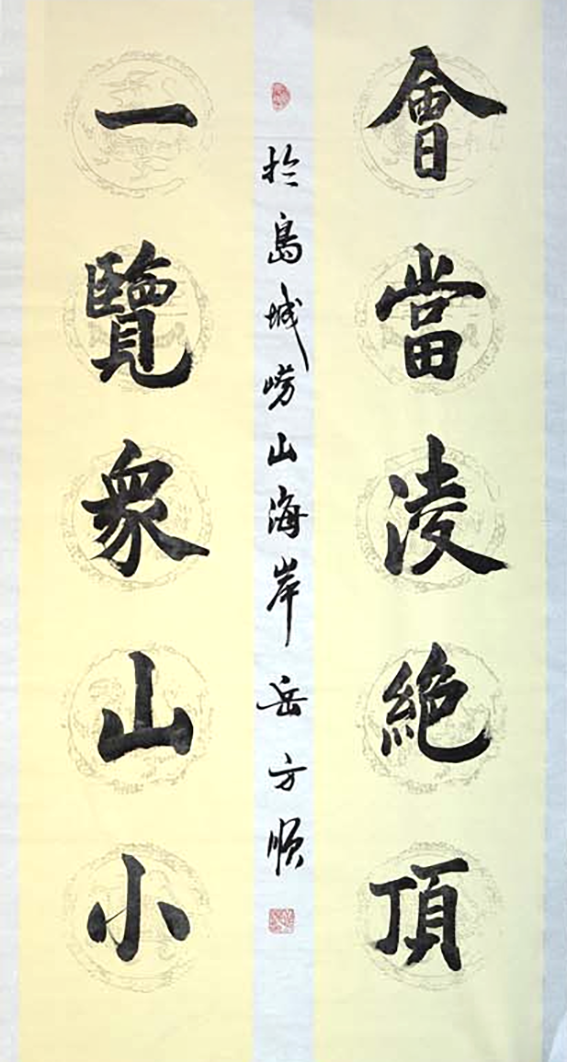 會當淩絕頂
於島城嶗山海岸岳方順
一覽衆山小